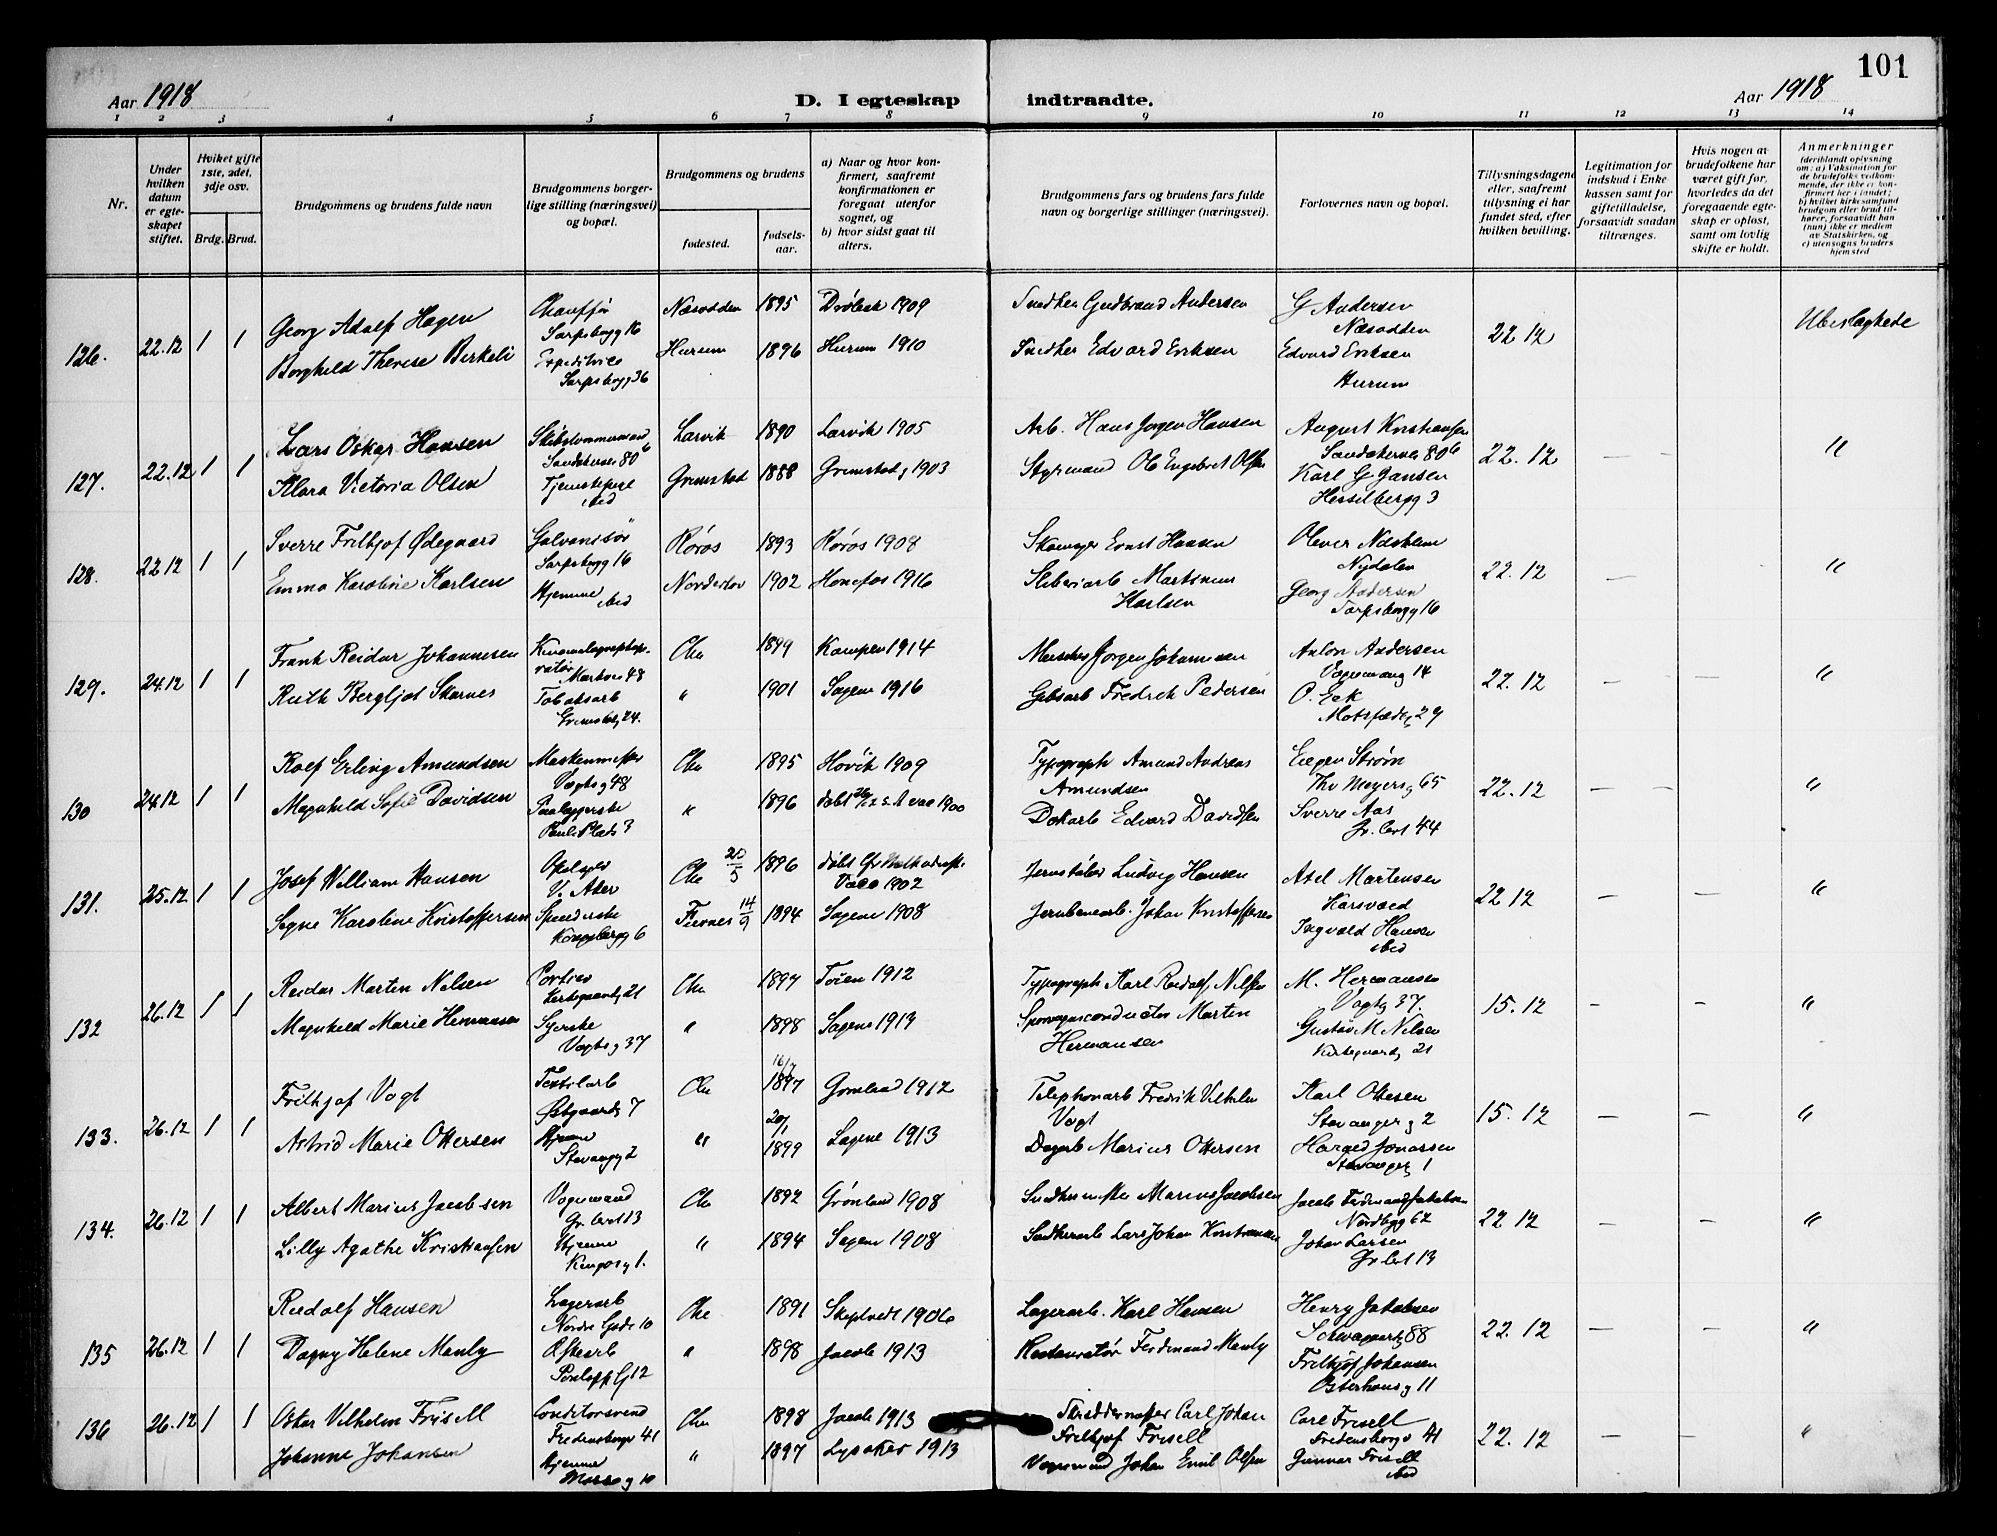 101
Aar 1918
D. I egteskap indtraadte.
Aar 1918
1 2 3 4 5 6 7 8 9 10 11 12 13 14
Nr.
Under hvilken datum er egteskapet stiftet.
Hviket gifte 1ste, 2det, 3dje osv.
Brdg. Brud.
Brudgommens og brudens fulde navn
Brudgommens borgerlige stilling (næringsvei) og bopæl.
Brudgommens og brudens
fødested.
fødselsaar.
a) Naar og hvor konfirmert, saafremt konfirmationen er foregaat utenfor sognet, og
b) hvor sidst gaat til alters.
Brudgommens fars og brudens fars fulde navn og borgerlige stillinger (næringsvei).
Forlovernes navn og bopæl.
Tillysningsdagene eller, saafremt tillysning ei har fundet sted, efter hvilken bevilling.
Legitimation for indskud i Enkekassen samt for giftetilladelse, forsaavidt saadan tiltrænges.
Hvis nogen av brudefolkene har været gift før, hvorledes da det foregaaende egteskap er opløst, samt om lovlig skifte er holdt.
Anmerkninger (deriblandt oplysning om: a) Vaksination for de brudefolks vedkommende, der ikke er konfirmert her i landet; b) hvilket kirkesamfund brudgom eller brud tilhører, forsaavidt han (hun) ikke er medlem av Statskirken, og c) utensogns bruders hjemsted
126. 22.12 1 1 Georg Adolf Hagen
Chauffør Sarpsborgg 16 Næsodden 1895 Drøbak 1909
Snedker Gudbrand Andersen G Andersen Næsodden 22 12 Ubeslægtede
Borghild Therese Birkeli
Sarpsborgg 36 Hurum 1896 Hurum 1910
Snedker Edvard Eriksen Edvard Eriksen Hurum
127. 22.12 1 1 Lars Oskar Hansen
Sandakerve 80 b Larvik 1890 Larvik 1905
Arb. Hans Jørgen Hansen August Kristiansen Sandakerve 80 b 22.12 — — "
Klara Victoria Olsen
Tjenestepige ibid Grimstad 1888 Grimstad 1903
Styrmand Ole Engebret Olsen Karl G Jansen Hesselbergg 3
128. 22 12 1 1 Sverre Frithjof Ødegaard
Galvanisør Sarpsbgg 16 Røros 1893 Røros 1908
Skomager Ernst Hansen Nydalen 22.12 — "
Emma Karoline Karlsen
Hjemme ibid Norderhov 1902 Hønefos 1916
Sliberiarb Karlsen Georg Andersen Sarpsborgg 16
129. 24.12 1 1 Frank Reidar Johannesen
Markvei 48 Chra 1899 Kampen 1914
Jørgen Johannesen Anton Andersen 14 22.12 — — "
Ruth Bergljot Skarnes
Tobaksarb 24. " 1901 Sagene 1916
Gibsarb Fredrik Pedersen O. Eek Motzfeldtsg 29
130 24.12 1 1 Rolf Erling Amundsen
Maskinmester Vogtsg 48 Chra 1895 Høvik 1909
Typograph Amund Andreas Amundsen Eugen Strøm Thv Meyersg 65 22.12 — — "
Magnhild Sofie Davidsen
Paulus Plads 3 " 1896 døbt 1900
Dokarb Edvard Davidsen Sverre Aas 44
131. 25.12 1 1 Josef William Hansen
V. Aker Chra 20/5 1896 døbt 1902
Ludvig Hansen Axel Martensen 22 12 — — "
Signe Karoline Kristoffersen
Spinderske Kongsbergg 6 14/9 1894 Sagene 1908
Jernbanearb. Johan Kristoffersen Ingvald Hansen ibid
132 26.12 1 1 Reidar Martin Nilsen
Portier 21 Chra 1897 Tøien 1912
Typograph Karl Rudolf Nilsen M. Hermansen Vogtsg 37. 15.12 — — "
Magnhild Marie Hermansen
Syerske Vogtsg 37 " 1898 Sagene 1913
Sporvogsconductør Martin Hermansen Gustav M Nilsen 21
133. 26.12 1 1 Frithjof Vogt
Textilarb Østgaardsg 7 Chra 16/7 1897 Grønland 1912
Telephonarb Fredrik Vilhelm Vogt Karl Ottesen Stavangerg 2 15.12 — — "
Astrid Marie Ottersen
Hjemme Stavangg 2 " 20/1 1899 Sagene 1913
Dagarb Marius Ottersen Harald Jonassen Stavangerg 1
134. 26.12 1 1 Albert Marius Jacobsen
Vognmand 13 Chra 1892 Grønland 1908
Snedkermester Marius Jacobsen Jacob Ferdinand Jakobsen Nordbgg 62 22 12 — — "
Lilly Agathe Kristiansen
Hjemme Kingosg 1. " 1894 Sagene 1908
Snedkerarb Lars Johan Kristiansen Johan Larsen 13
135 26.12 1 1 Rudolf Hansen
Lagerarb Nordre Gade 10 Chra 1891 Skiptvedt 1906
Lagerarb. Karl Hansen Henry Jakobsen 88 22.12 — — "
Dagny Helene Manly
12 " 1898 Jacob 1913
Restauratør Ferdinand Manly Frithjof Johansen Osterhausg 11
136 26.12 1 1 Oskar Vilhelm Frisell
Conditorsvend Fredensborgv 41 Chra 1898 Jacob 1913
Skreddermester Carl Johan Frithjof Frisell Carl Frisell Fredensborgv 41 22.12 — — "
Johanne Johansen
Hjemme Mosseg 10 " 1897 Lysaker 1913
Vognmand Johan Emil Olsen Gunnar Frisell ibid